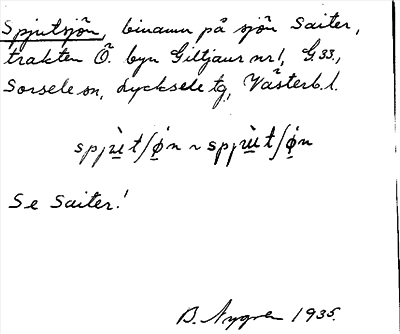 Spjutsjön, binamn på sjön Saiter,
trakten Ö. byn Giltjaur nr 1, G.33.,
Sorsele sn, Lycksele tg, Västerb. l.
spjùt/ǿn ~ spjùt/ǿn
Se Saiter!
B. Nygren 1935.